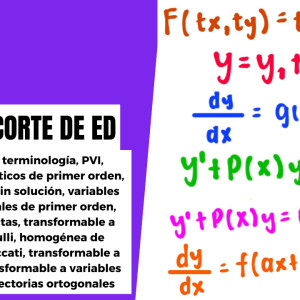 CORTE DE ED
terminología, PVI,
ticos de primer orden,
in solución, variables
les de primer orden,
tas, transformable a
ulli, homogénea de
ccati, transformable a
sformable a variables
ectorias ortogonales
F(tx,ty) = t
y = y₁ +
dy/dx = g(
y' + P(x)y
y' + P(x)y =
dy/dx = f(ax+